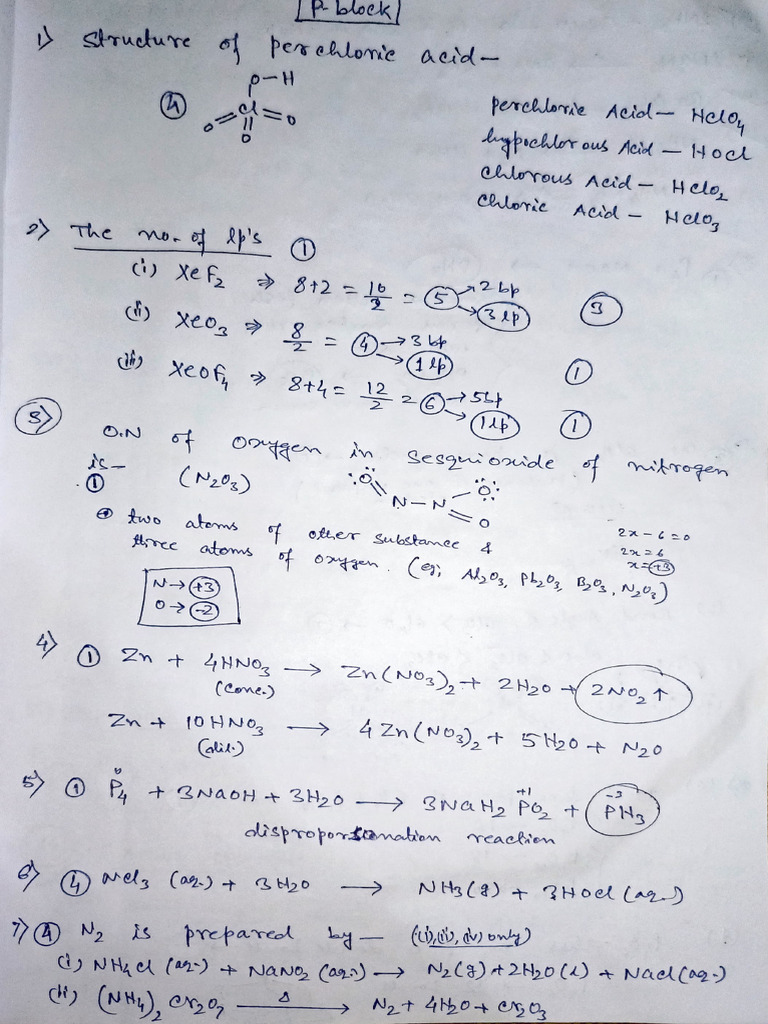 P-block
1) structure of perchloric acid—
④
O—H
O=Cl=O
O
perchloric Acid— HClO4
hypochlorous Acid — HOCl
chlorous Acid— HClO2
chloric Acid— HClO3
2) The no. of lp's ①
(i) XeF2 ⇒ 8+2 = 10/2 = ⑤ → 2bp → 3lp ③
(ii) XeO3 ⇒ 8/2 = ④ → 3bp → 1lp ①
(iii) XeOF4 ⇒ 8+4 = 12/2 = ⑥ → 5bp → 1lp ①
3) O.N of oxygen in sesquioxide of nitrogen
is— (N2O3)
①
O=N—N—O
=O
two atoms of other substance &
three atoms of oxygen. (eg; Al2O3, Pb2O3, B2O3, N2O3)
2x-6=0
2x=6
x=+3
N→ +3
O→ -2
4) ① Zn + 4HNO3 (conc.) → Zn(NO3)2 + 2H2O + 2NO2↑
Zn + 10HNO3 (dil.) → 4Zn(NO3)2 + 5H2O + N2O
5) ① P4 (0) + 3NaOH + 3H2O → 3NaH2PO2 (+1) + PH3 (-3)
disproportionation reaction
6) ④ NCl3 (aq.) + 3H2O → NH3(g) + 3HOCl (aq.)
7) ④ N2 is prepared by— ((i),(ii),(iv) only)
(i) NH4Cl (aq.) + NaNO2 (aq.) → N2(g)+2H2O(l) + NaCl(aq.)
(ii) (NH4)2Cr2O7 —Δ→ N2 + 4H2O + Cr2O3